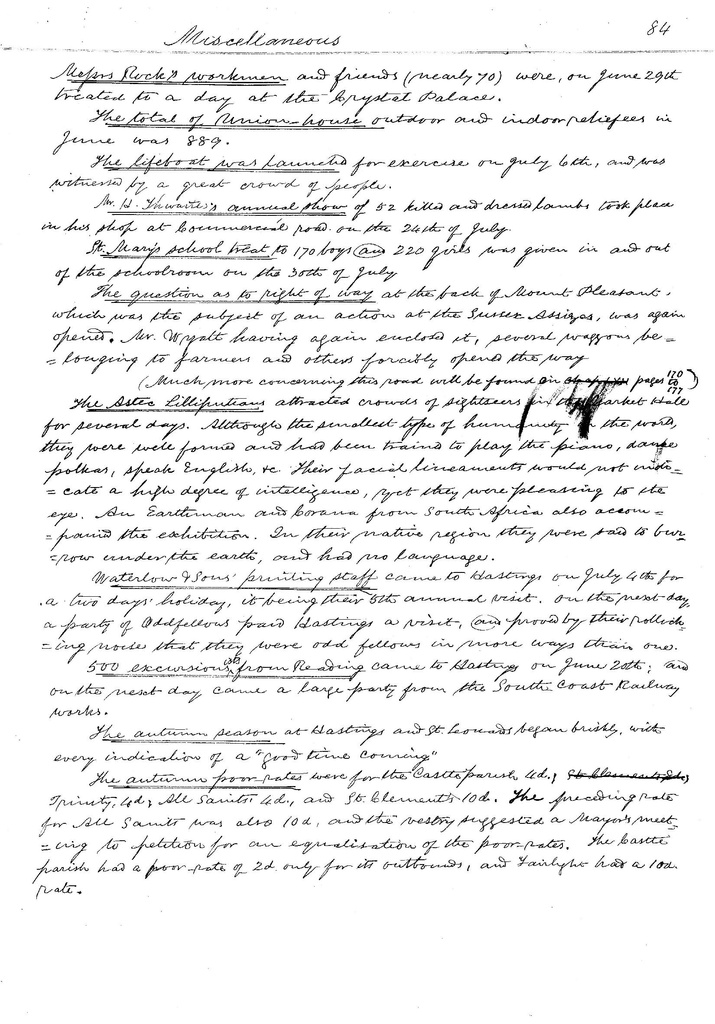 Miscellaneous
84
Messrs Rock's workmen and friends (nearly 70) were, on June 29th
treated to a day at the Crystal Palace.
The total of Union-house outdoor and indoor reliefees in
June was 889.
The lifeboat was launched for exercise on July 6th, and was
witnessed by a great crowd of people.
Mr. H. Thwaites's annual show of 52 killed and dressed lambs took place
in his shop at Commercial road on the 24th of July.
St. Mary's school treat to 170 boys and 220 girls was given in and out
of the schoolroom on the 30th of July
The question as to right of way at the back of Mount Pleasant,
which was the subject of an action at the Sussex Assizes, was again
opened. Mr. Wyatt having again enclosed it, several waggons be=
=longing to farmers and others forcibly opened the way
(Much more concerning this road will be found on pages 170 to 177)
The Aztec Lilliputians attracted crowds of sightseers in the Market Hall
for several days. Although the smallest type of humanity in the world,
they were well formed and had been traind to play the piano, dance
polkas, speak English, &c. Their facial lineaments would not indi=
=cate a high degree of intelligence, yet they were pleasing to the
eye. An Earthman and Corana from South Africa also accom=
=panied the exhibition. In their native region they were said to bur=
=row under the earth, and had no language.
Waterlow & Sons' printing staff came to Hastings on July 4th for
a two days' holiday, it being their 5th annual visit. On the next day,
a party of Oddfellows paid Hastings a visit, and proved by their rollick=
=ing noise that they were odd fellows in more ways than one.
500 excursionists from Reading came to Hastings on June 20th; and
on the next day came a large party from the South Coast Railway
works.
The autumn season at Hastings and St. Leonards began briskly, with
every indication of a "good time coming"
The autumn poor-rates were for the Castle parish 4d.; St Clements, 10d;
Trinity, 4d; All Saints 4d., and St. Clement's 10d. The preceding rate
for All Saints was also 10d, and the vestry suggested a Mayor's meet=
=ing to petition for an equalisation of the poor-rates. The Castle
parish had a poor-rate of 2d. only for its outbounds, and Fairlight had a 10d.
rate.